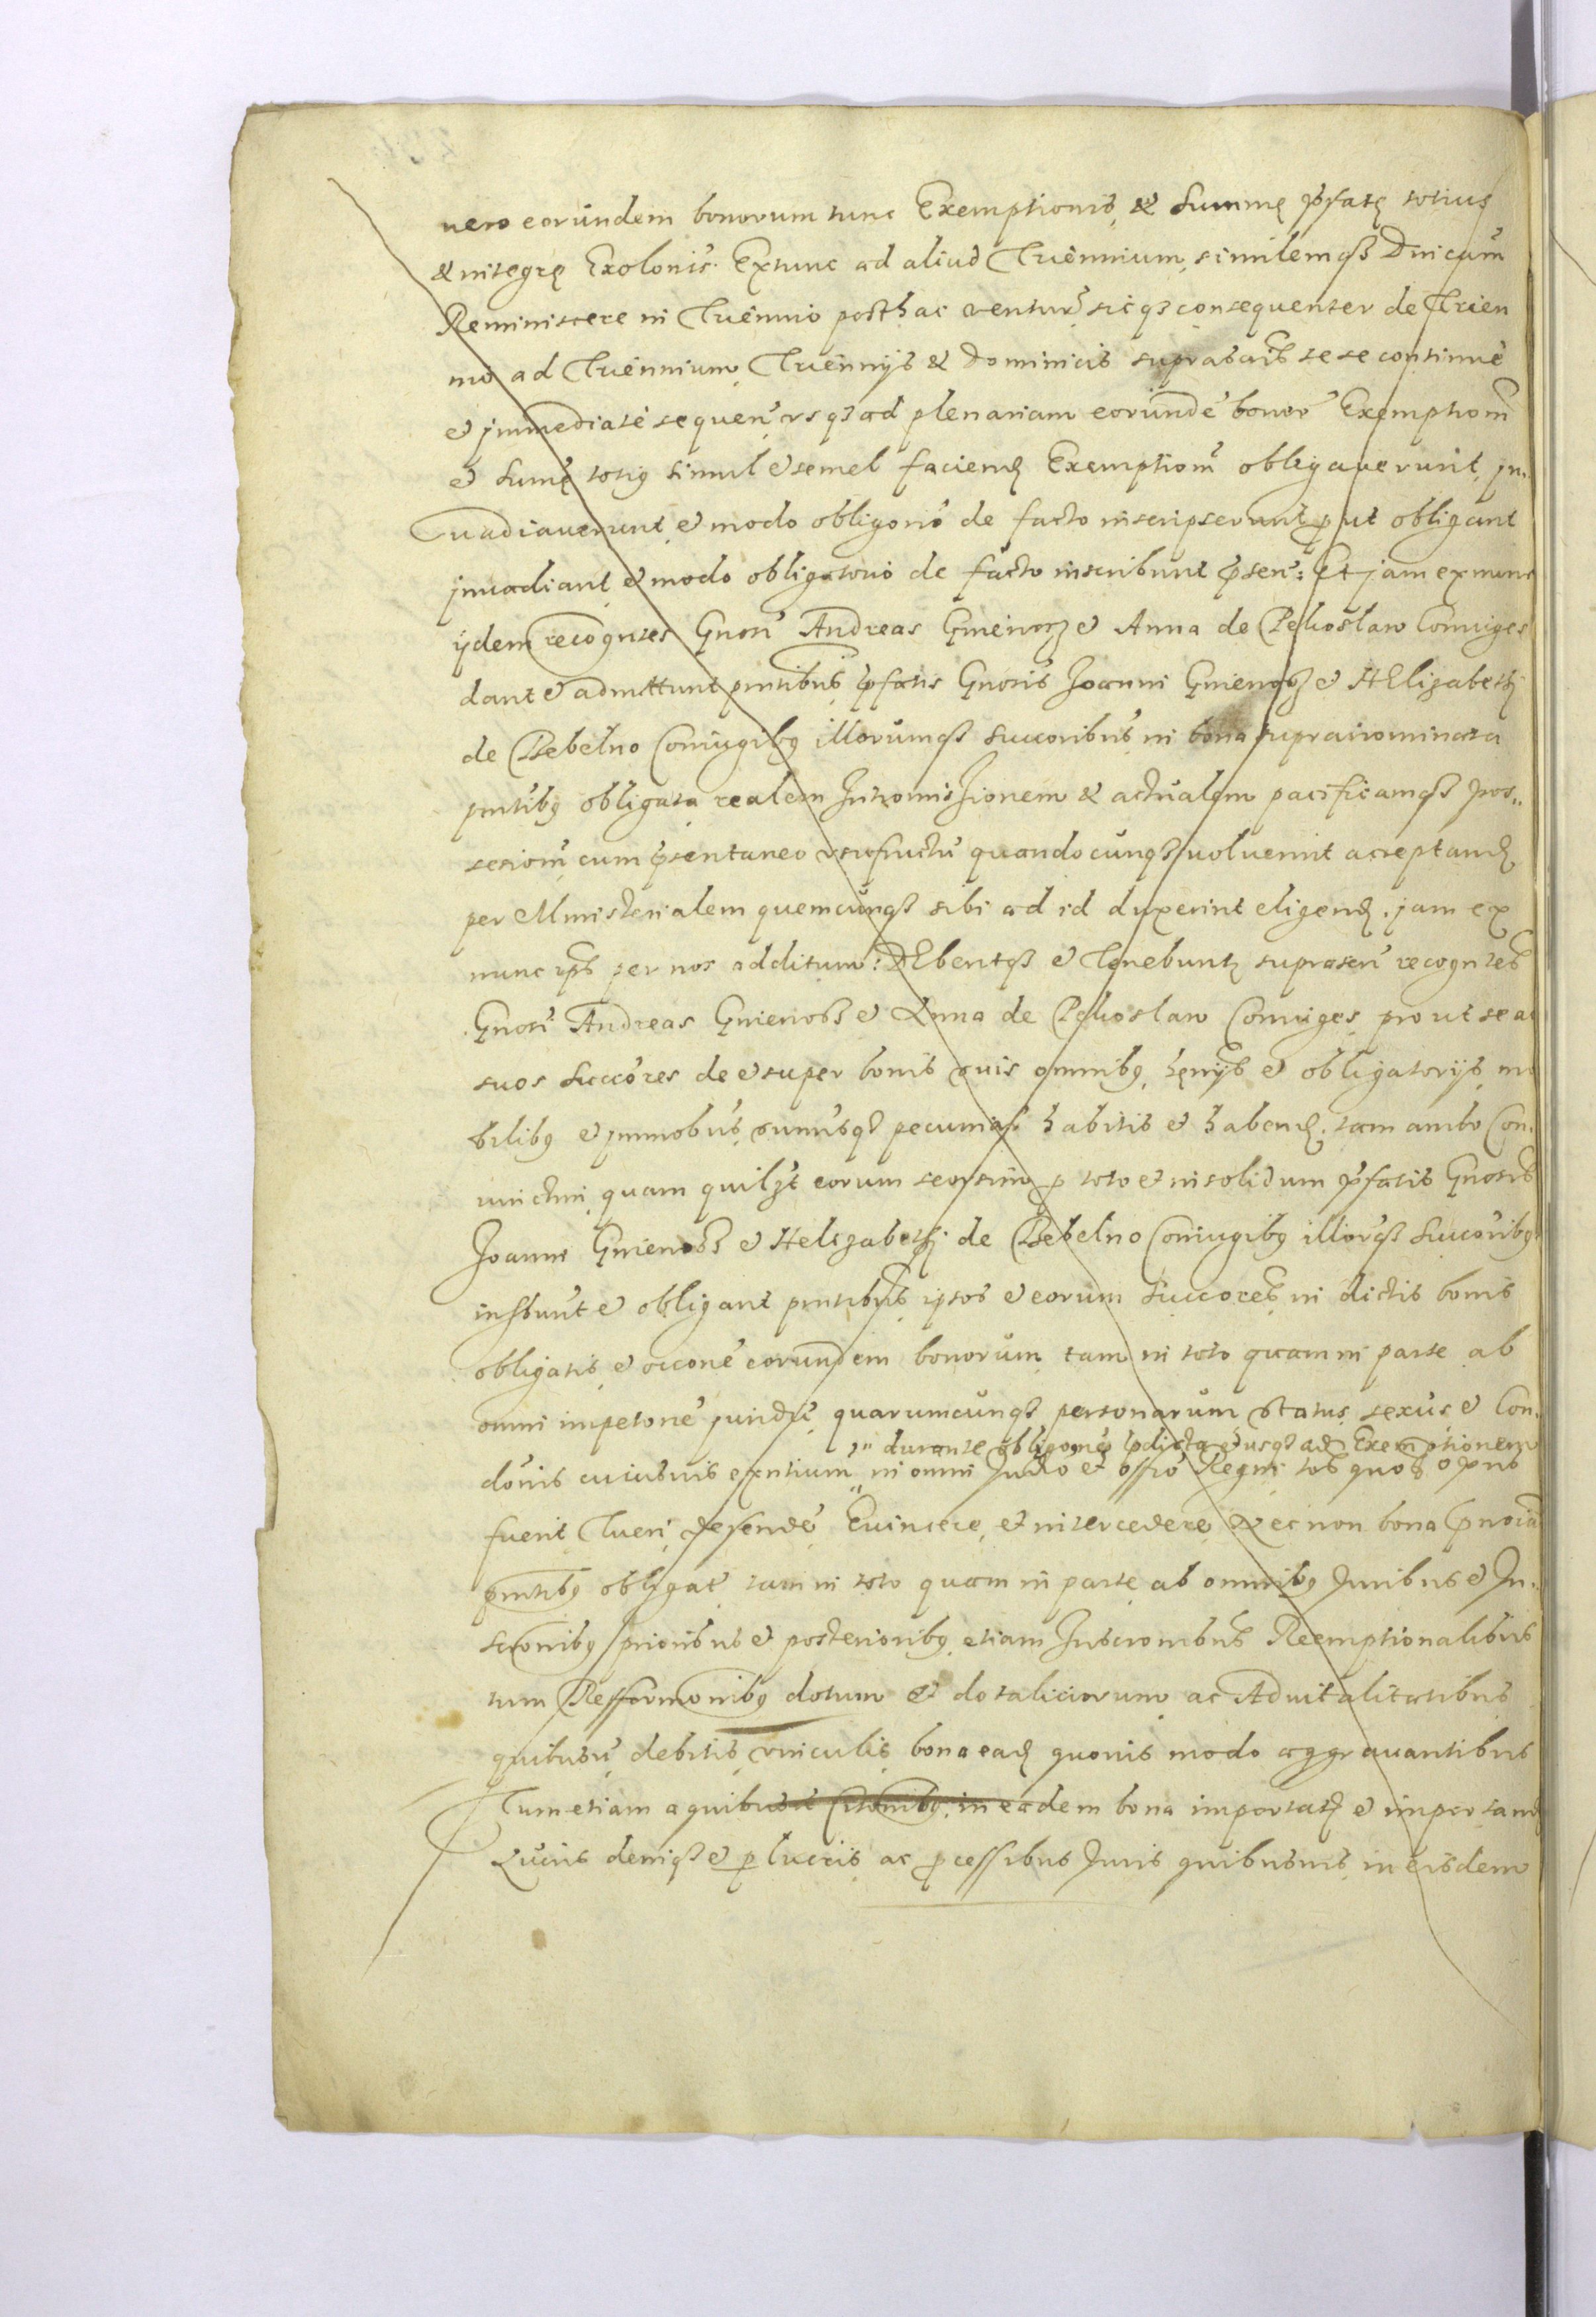 vero eorundem bonorum tunc Exemptionis, & Summę p̃fatę totius
& integrę Exolonis. Extunc ad aliud Triennium, similemq3 Dnicam
Reminiscere in Triennio posthac ventur̃, sicq3 consequenter de Trien
nio ad Triennium, Triennijs & Dominicis suprascrĩs se se continuè
et jmmediatè sequeñ, usq3 ad plenariam eorundẽ bonor̃ Exemptiom̃
et Sum̃ę totiq simul et semel faciend Exemptiom̃ obligaverunt, jn-
vadiaverunt, et modo obligorio de facto inscripserunt, put obligant
jnvadiant, et modo obligatorio de facto inscribunt p̃sen: Et jam exnunc
ijdem recogntes Gnosi Andreas Gniewosz et Anna de Pekoslaw Coniuges
dant et admittunt pntibus, p̃fatis Gnosis Joanni Gniewosz et HElizabethj
de Bebelno Coniugibq illorumq3 Succoribus, in bona supra nominata
pntibq obligata realem Intromissionem & actualem pacificamq3 pos-
sesiom̃, cum p̃sentaneo usufructu quandocunq3 voluerint acceptand
per Ministerialem quemcunq3 sibi ad id duxerint eligend. jam ex
nunc ip̃s per nos additum: DEbentq3 et Tenebuntr suprascrĩ recogntes
Gnosi Andreas Gniewosz et Anna de Pekoslaw Coniuges, prout se ac
suos Succores de et super bonis suis omnibq, hęrijs et obligatorijs, mo
bilibq et jmmobus, sumisq3 pecuniar̃ habitis et habend. tam ambo Con-
iunctim, quam quilzt eorum seorsim p toto et in solidum p̃fatis Gnosis
Joanni Gniewosz et Helizabethj de Bebelno Coniugibq illorq3 Succoribq
inscbunt et obligant pntibus, ipsos et eorum Succores, in dictis bonis
obligatis, et occone eorundem bonorum, tam in toto quam in parte ab
omni impetone juridica quarumcunq3 personarum status, sexus, et Con-
,, durante obligone p̃dicta et usq3 ad Exemptionem
donis cuiusvis exntium ,, in omni Judo et offio Regni tots quots opus
fuerit, Tueri, defendẽ, Evincere, et intercedere, Nec non bona p̃noiãta
pntibq obligat̃ tam in toto quam in parte, ab omnibq Juribus et In-
sc̃ronibq prioribus et posterioribq, etiam Inscronibus Reemptionalibus
tum Refformonibq dotum et dotaliciorum, ac Advitalitatibus
quibusvis, debitis, vinculis, bona ead quovis modo aggravantibus
Tum etiam a quibusvis Citonibq, in eadem bona importatis et importand
Lucris deniq3 et plucris, ac processibus Juris quibusvis, in eisdem